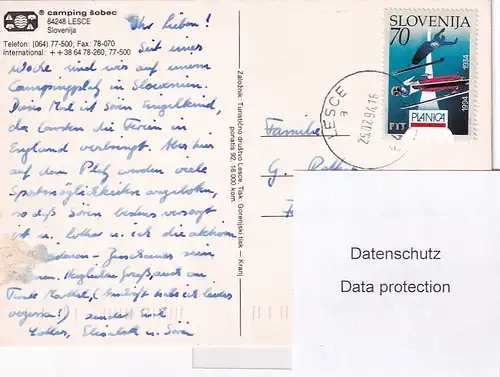 ® camping šobec
64248 LESCE
Slovenija
Telefon: (064) 77-500; Fax: 78-070
International: ++38 64 78-260; 77-500
Ihr Lieben!
Seit einer
Woche sind wir auf einem
Campingplatz in Slovenien.
Dies Mal ist Sören Engelkind,
da Carsten die Ferien in
England verbringt. Aber hier
auf dem Platz werden viele
Sportmöglichkeiten angeboten,
so daß Sören bestens versorgt
ist u. Lothar u. ich die aktiven
Zuschauer sein
Herzliche Grüße, auch an
Tante (Anschrift habe ich leider
vergessen!) senden Euch
Lothar, Elisabeth u. Sören
Založnik: Turistično društvo Lesce, Tisk: Gorenjski tisk — Kranj
ponatis 92, 16 000 kom
SLOVENIJA
70
1934
1994
PLANICA
FIT
LESCE
a
Familie
G.
Datenschutz
Data protection